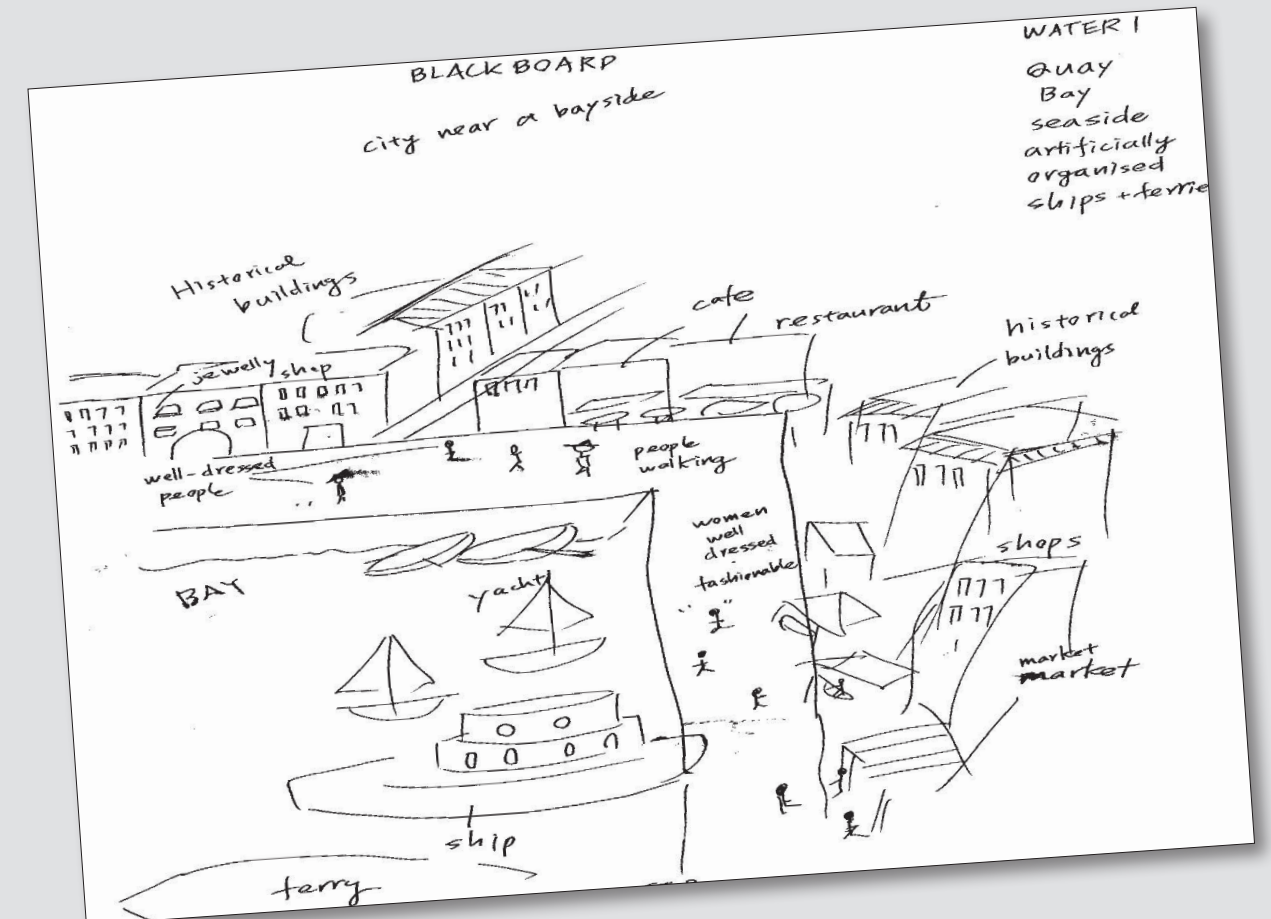 BLACK BOARD
city near a bayside
WATER 1
Quay
Bay
seaside
artificially
organised
ships + ferrie
Historical
buildings
cafe
restaurant
historical
buildings
jewelly
shop
well-dressed
people
people
walking
women
well
dressed
fashionable
shops
BAY
yacht
market
market
ship
ferry